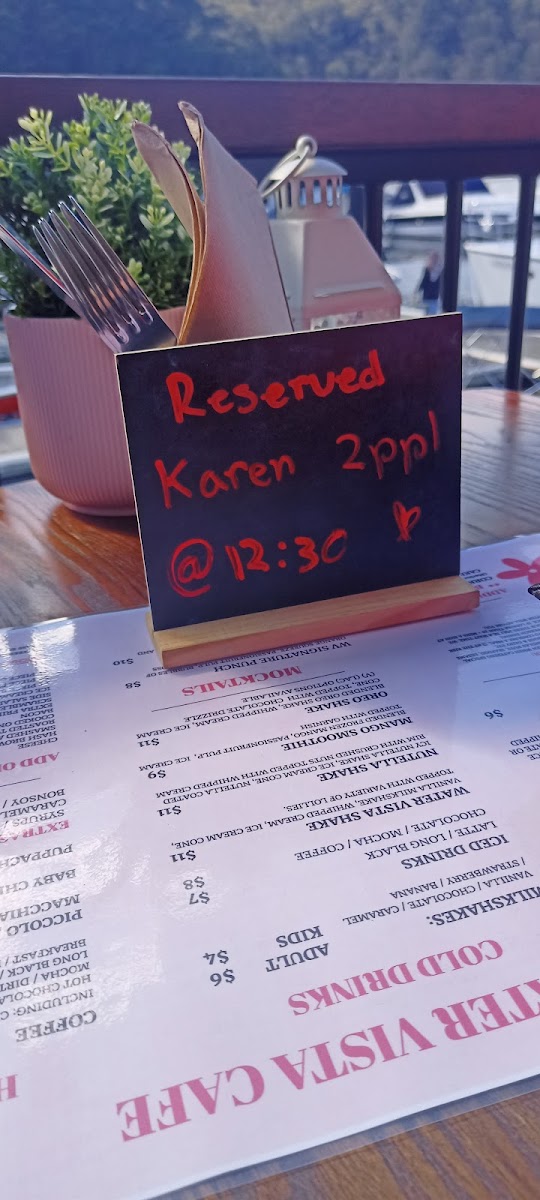 Reserved
Karen 2ppl
@ 12:30
WATER VISTA CAFE
COLD DRINKS
ADULT KIDS
MILKSHAKES: $6 $4
VANILLA / CHOCOLATE / CARAMEL
/ STRAWBERRY / BANANA
ICED DRINKS $7
LATTE / LONG BLACK $8
CHOCOLATE / MOCHA / COFFEE
WATER VISTA SHAKE $11
VANILLA MILKSHAKE, WHIPPED CREAM, ICE CREAM CONE,
TOPPED WITH VARIETY OF LOLLIES.
NUTELLA SHAKE $11
ICY NUTELLA SHAKE, ICE CREAM CONE, NUTELLA COATED
RIM WITH CRUSHED NUTS TOPPED WITH WHIPPED CREAM
MANGO SMOOTHIE $9
BLENDED FROZEN MANGO, PASSIONFRUIT PULP, ICE CREAM
TOPPED WITH GARNISH
OREO SHAKE $11
BLENDED OREO SHAKE, WHIPPED CREAM, ICE CREAM
CONE, TOPPED WITH CHOCOLATE DRIZZLE
(V) (LAC) OPTIONS AVAILABLE
MOCKTAILS $8
WV SIGNATURE PUNCH $10
COFFEE
INCLUDING:
HOT CHOCOLA
MOCHA / DIRT
LONG BLACK /
BREAKFAST
PICCOLO
MACCHIA
BABY CHI
PUPPACH
EXTRAS
SYRUPS
CARAMEL
BONSOY /
ADD O
CHEESE
HASH BROW
SMASHED
COOKED
BACON
EXTRA
SCRAMB
ICE CREA
$6